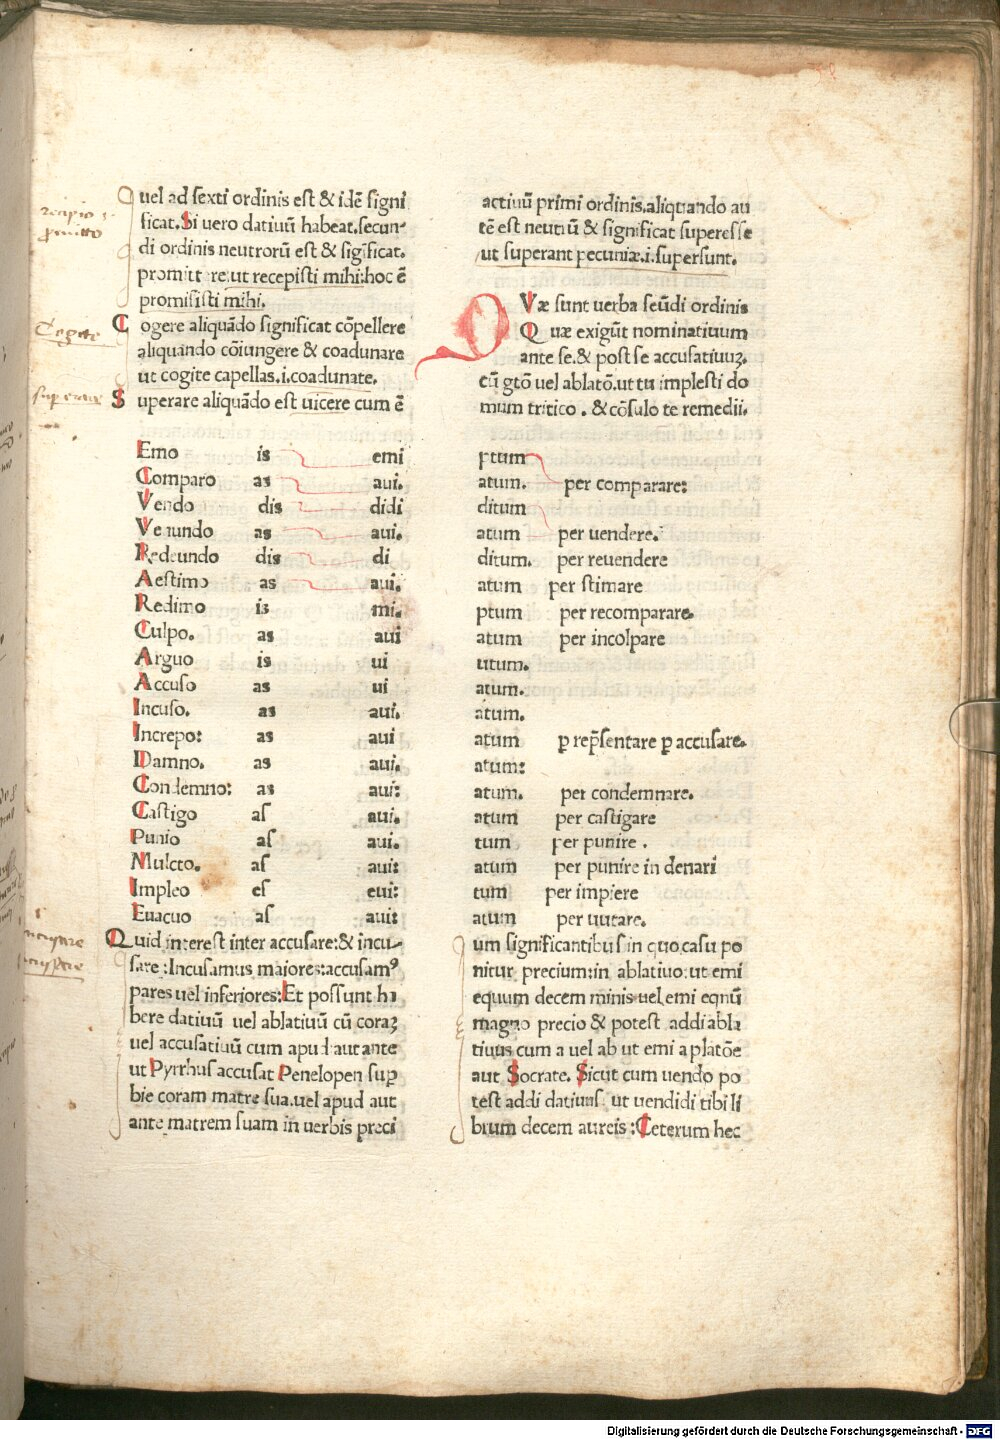 uel ad sexti ordinis est & idē signi
ficat. Si uero datiuū habeat. secun-
di ordinis neutrorū est & significat.
promittere: ut recepisti mihi: hoc ē
promisisti mihi.
Cogere aliquādo significat cōpellere
aliquando cōiungere & coadunare
ut cogite capellas. i. coadunate.
Superare aliquādo est uīcere cum ē
actiuū primi ordinis. aliquando au
tē est neutrū & significat superesse
ut superant pecuniæ. i. supersunt.
Væ sunt uerba secūdi ordinis
Quæ exigūt nominatiuum
ante se. & post se accusatiuuꝫ.
cū gtō uel ablatō. ut tu implesti do
mum tritico. & cōsulo te remedii.
Emo is emi ptum
Comparo as aui. atum. per comparare:
Vendo dis didi ditum
Venundo as aui. atum per uendere.
Redeundo dis di ditum. per reuendere
Aestimo as aui. atum per stimare
Redimo is mi. ptum per recomparare.
Culpo. as aui atum per incolpare
Arguo is ui utum.
Accuso as ui atum.
Incuso. as aui. atum.
Increpo: as aui atum ꝑ rep̄sentare ꝑ accusare.
Damno. as aui. atum:
Condemno: as aui: atum. per condemnare.
Castigo as aui. atum per castigare
Punio as aui. tum per punire.
Mulcto. as aui: atum per punire in denari
Impleo es eui: tum per impiere
Euacuo as aui: atum per uutare.
Quid interest inter accusare: & incu-
sare: Incusamus maiores: accusamꝰ
pares uel inferiores: Et possunt ha
bere datiuū uel ablatiuū cū coraꝫ
uel accusatiuū cum apud aut ante
ut Pyrrhus accusat Penelopen suꝑ
bie coram matre sua. uel apud aut
ante matrem suam in uerbis preci
um significantibus in quo casu po
nitur precium: in ablatiuo: ut emi
equum decem minis uel emi equū
magno precio & potest addi abla
tiuus cum a uel ab ut emi a platōe
aut Socrate. Sicut cum uendo po
test addi datiuus. ut uendidi tibi li
brum decem aureis: Ceterum hec
recipio
Cogere
superare
Digitalisierung gefördert durch die Deutsche Forschungsgemeinschaft - DFG